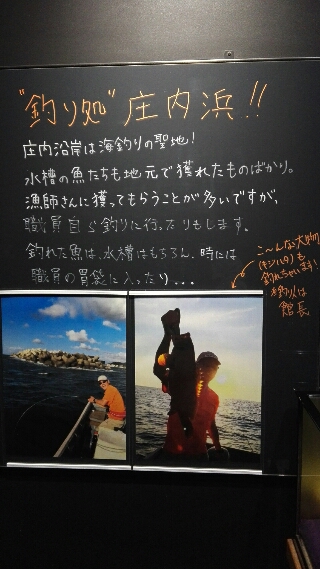 "釣り処"庄内浜!!
庄内沿岸は海釣りの聖地!
水槽の魚たちも地元で獲れたものばかり。
漁師さんに獲ってもらうことが多いですが、
職員自ら釣りに行ったりもします。
釣れた魚は、水槽はもちろん、時には
職員の胃袋に入ったり...
こ〜んな大物
(キジハタ)も
釣れちゃいます!
釣り人は
館長